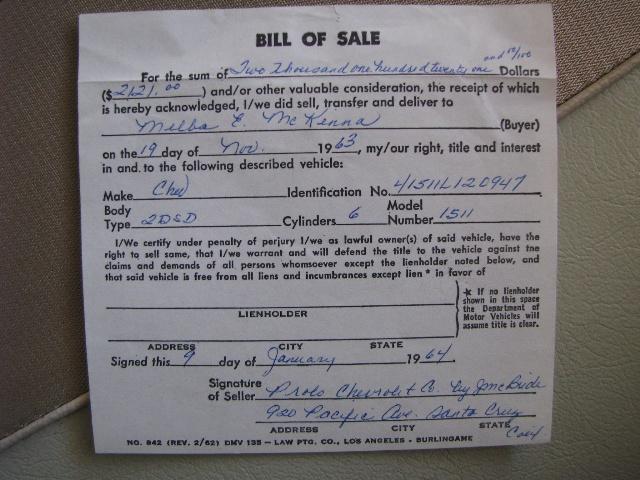 BILL OF SALE
and 00/100
For the sum of Two thousand one hundred twenty one Dollars
($2121.00) and/or other valuable consideration, the receipt of which
is hereby acknowledged, I/we did sell, transfer and deliver to
Melba E. McKenna (Buyer)
on the 19 day of Nov. 1963, my/our right, title and interest
in and to the following described vehicle:
Make Chev Identification No. 41511L120947
Body Type 2DSD Cylinders 6 Model Number 1511
I/We certify under penalty of perjury I/we as lawful owner(s) of said vehicle, have the
right to sell same, that I/we warrant and will defend the title to the vehicle against the
claims and demands of all persons whomsoever except the lienholder noted below, and
that said vehicle is free from all liens and incumbrances except lien * in favor of
* If no lienholder
shown in this space
the Department of
Motor Vehicles will
assume title is clear.
LIENHOLDER
ADDRESS CITY STATE
Signed this 9 day of January 1964.
Signature
of Seller Prolo Chevrolet Co. by
920 Pacific Ave. Santa Cruz
ADDRESS CITY STATE Calif
NO. 842 (REV. 2/62) DMV 135 — LAW PTG. CO., LOS ANGELES - BURLINGAME